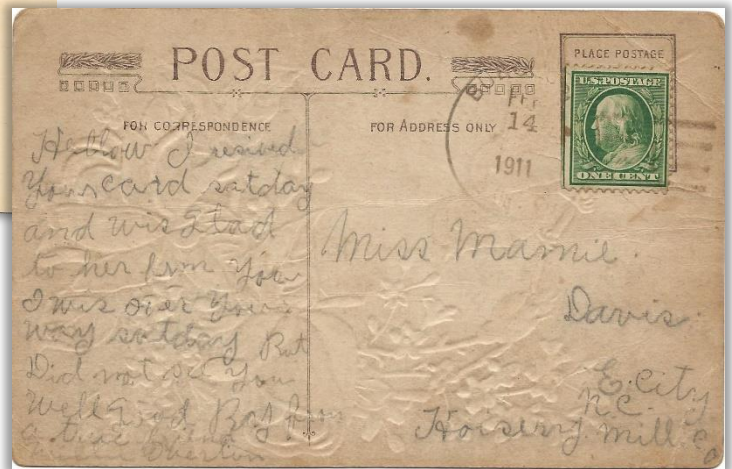 POST CARD.
PLACE POSTAGE
U.S. POSTAGE
ONE CENT
14
1911
FOR CORRESPONDENCE
FOR ADDRESS ONLY
Hellow I resived
Your card satday
and wis glad
to her frm You
I wis over Your
way satday But
Did not see You
Well Good By from
a true
Overton
Miss Mamie.
Davis.
E. City
N.C.
Hoisery Mill. Co